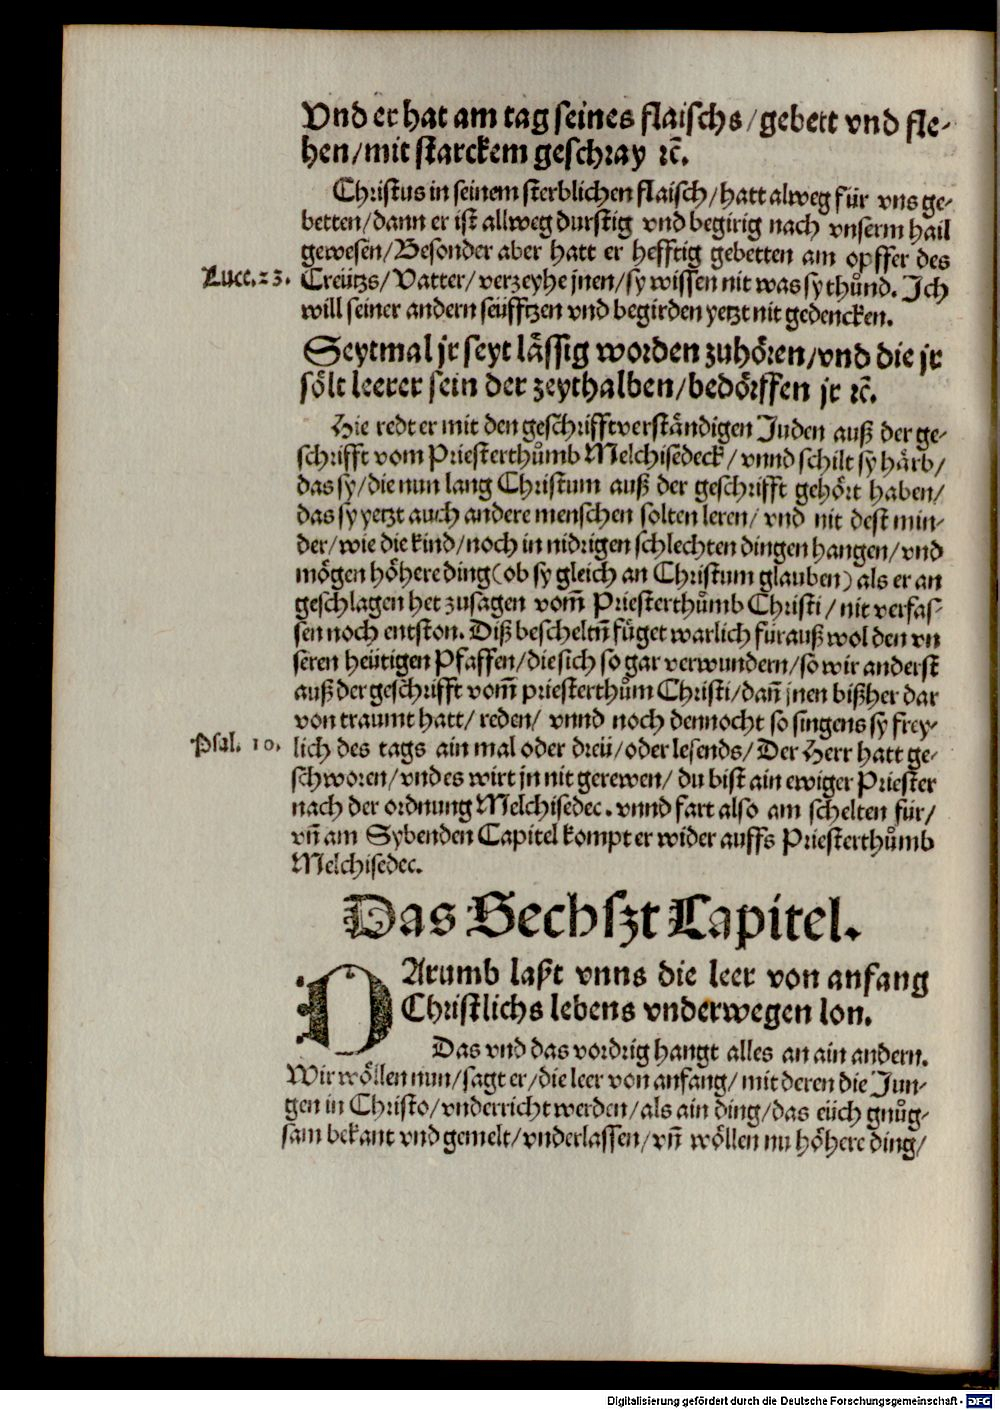 Vnd er hat am tag seines flaischs / gebett vnd fle-
hen / mit starckem geschray ꝛc̄.
Christus in seinem sterblichen flaisch / hatt alweg für vns ge-
betten / dann er ist allweg durstig vnd begirig nach vnserm hail
gewesen / Besonder aber hatt er hefftig gebetten am opffer des
Luce. 23. Creützs / Vatter / verzeyhe jnen / sy wissen nit was sy thůnd. Ich
will seiner andern seüfftzen vnd begirden yetzt nit gedencken.
Seytmal jr seyt lässig worden zuhören / vnd die jr
sölt leerer sein der zeythalben / bedörffen jr ꝛc̄.
Hie redt er mit den geschrifftverständigen Juden auß der ge-
schrifft vom Priesterthůmb Melchisedeck / vnnd schilt sy härb /
das sy / die nun lang Christum auß der geschrifft gehört haben /
das sy yetzt auch andere menschen solten leren / vnd nit dest min-
der / wie die kind / noch in nidrigen schlechten dingen hangen / vnd
mögen höhere ding (ob sy gleich an Christum glauben) als er an
geschlagen het zusagen vom̄ Priesterthůmb Christi / nit verfas-
sen noch entston. Diß bescheltn̄ füget warlich fürauß wol den vn
seren heütigen Pfaffen / die sich so gar verwundern / so wir anderst
auß der geschrifft vom̄ priesterthům Christi / dan̄ jnen bißher dar
von traumt hatt / reden / vnnd noch dennocht so singens sy frey-
Psal. 10. lich des tags ain mal oder dreü / oder lesends / Der Herr hatt ge-
schworen / vnd es wirt jn nit gerewen / du bist ain ewiger Priester
nach der ordnung Melchisedec. vnnd fart also am schelten für /
vn̄ am Sybenden Capitel kompt er wider auffs Priesterthůmb
Melchisedec.
Das Sechszt Capitel.
DArumb laßt vnns die leer von anfang
Christlichs lebens vnderwegen lon.
Das vnd das vordrig hangt alles an ain andern.
Wir wöllen nun / sagt er / die leer von anfang / mit deren die Jun-
gen in Christo / vnderricht werden / als ain ding / das eüch gnůg-
sam bekant vnd gemelt / vnderlassen / vn̄ wöllen nu höhere ding /
Digitalisierung gefördert durch die Deutsche Forschungsgemeinschaft - DFG